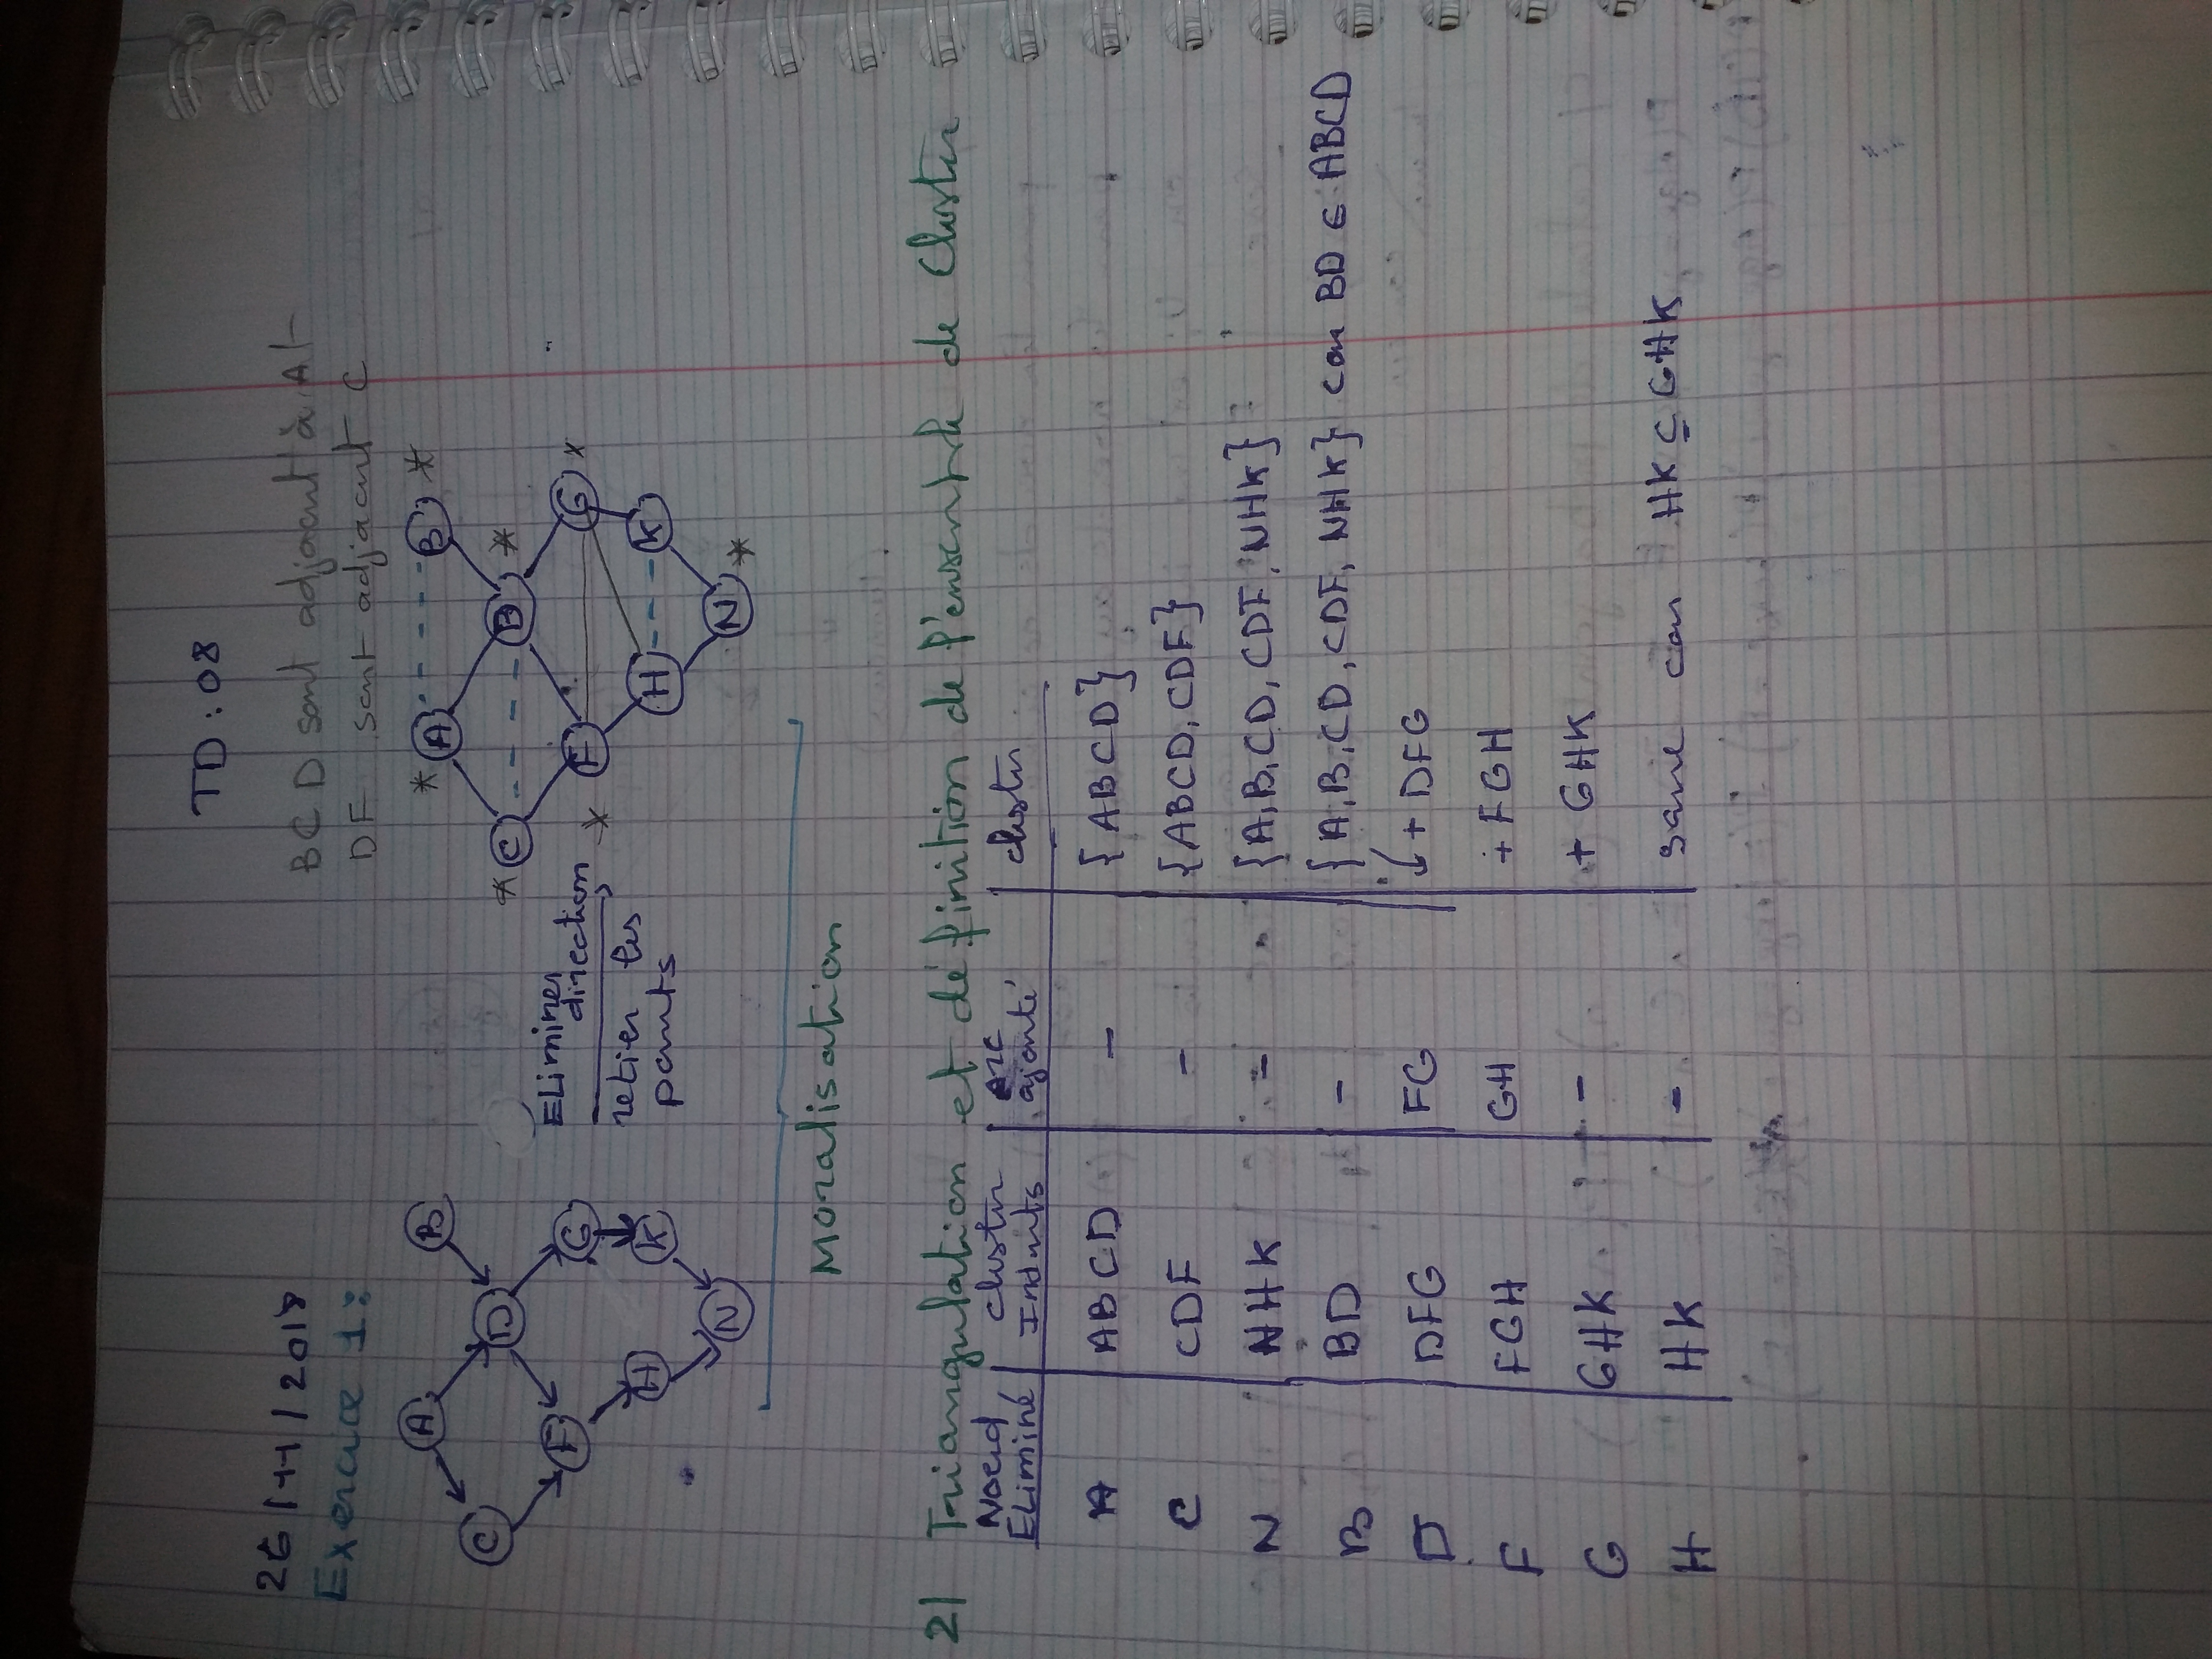 TD : 08
26/11/2018
BCD sont adjacent à A
Exercice 1 :
DF sont adjacent C
A B
C D
F G
H K
N
Eliminer direction
retier les
parents
A B
C D
F G
H K
N
Moralisation
2) Triangulation et définition de l'ensemble de Cluster
Noeud Eliminé | cluster Induits | Arc ajouté | cluster
A | ABCD | - | {ABCD}
C | CDF | - | {ABCD, CDF}
N | NHK | - | {A,B,CD, CDF, NHK}
B | BD | - | {A,B,CD, CDF, NHK} car BD ∈ ABCD
D | DFG | FG | ↓ + DFG
F | FGH | GH | + FGH
G | GHK | - | + GHK
H | HK | - | car HK ⊆ GHK